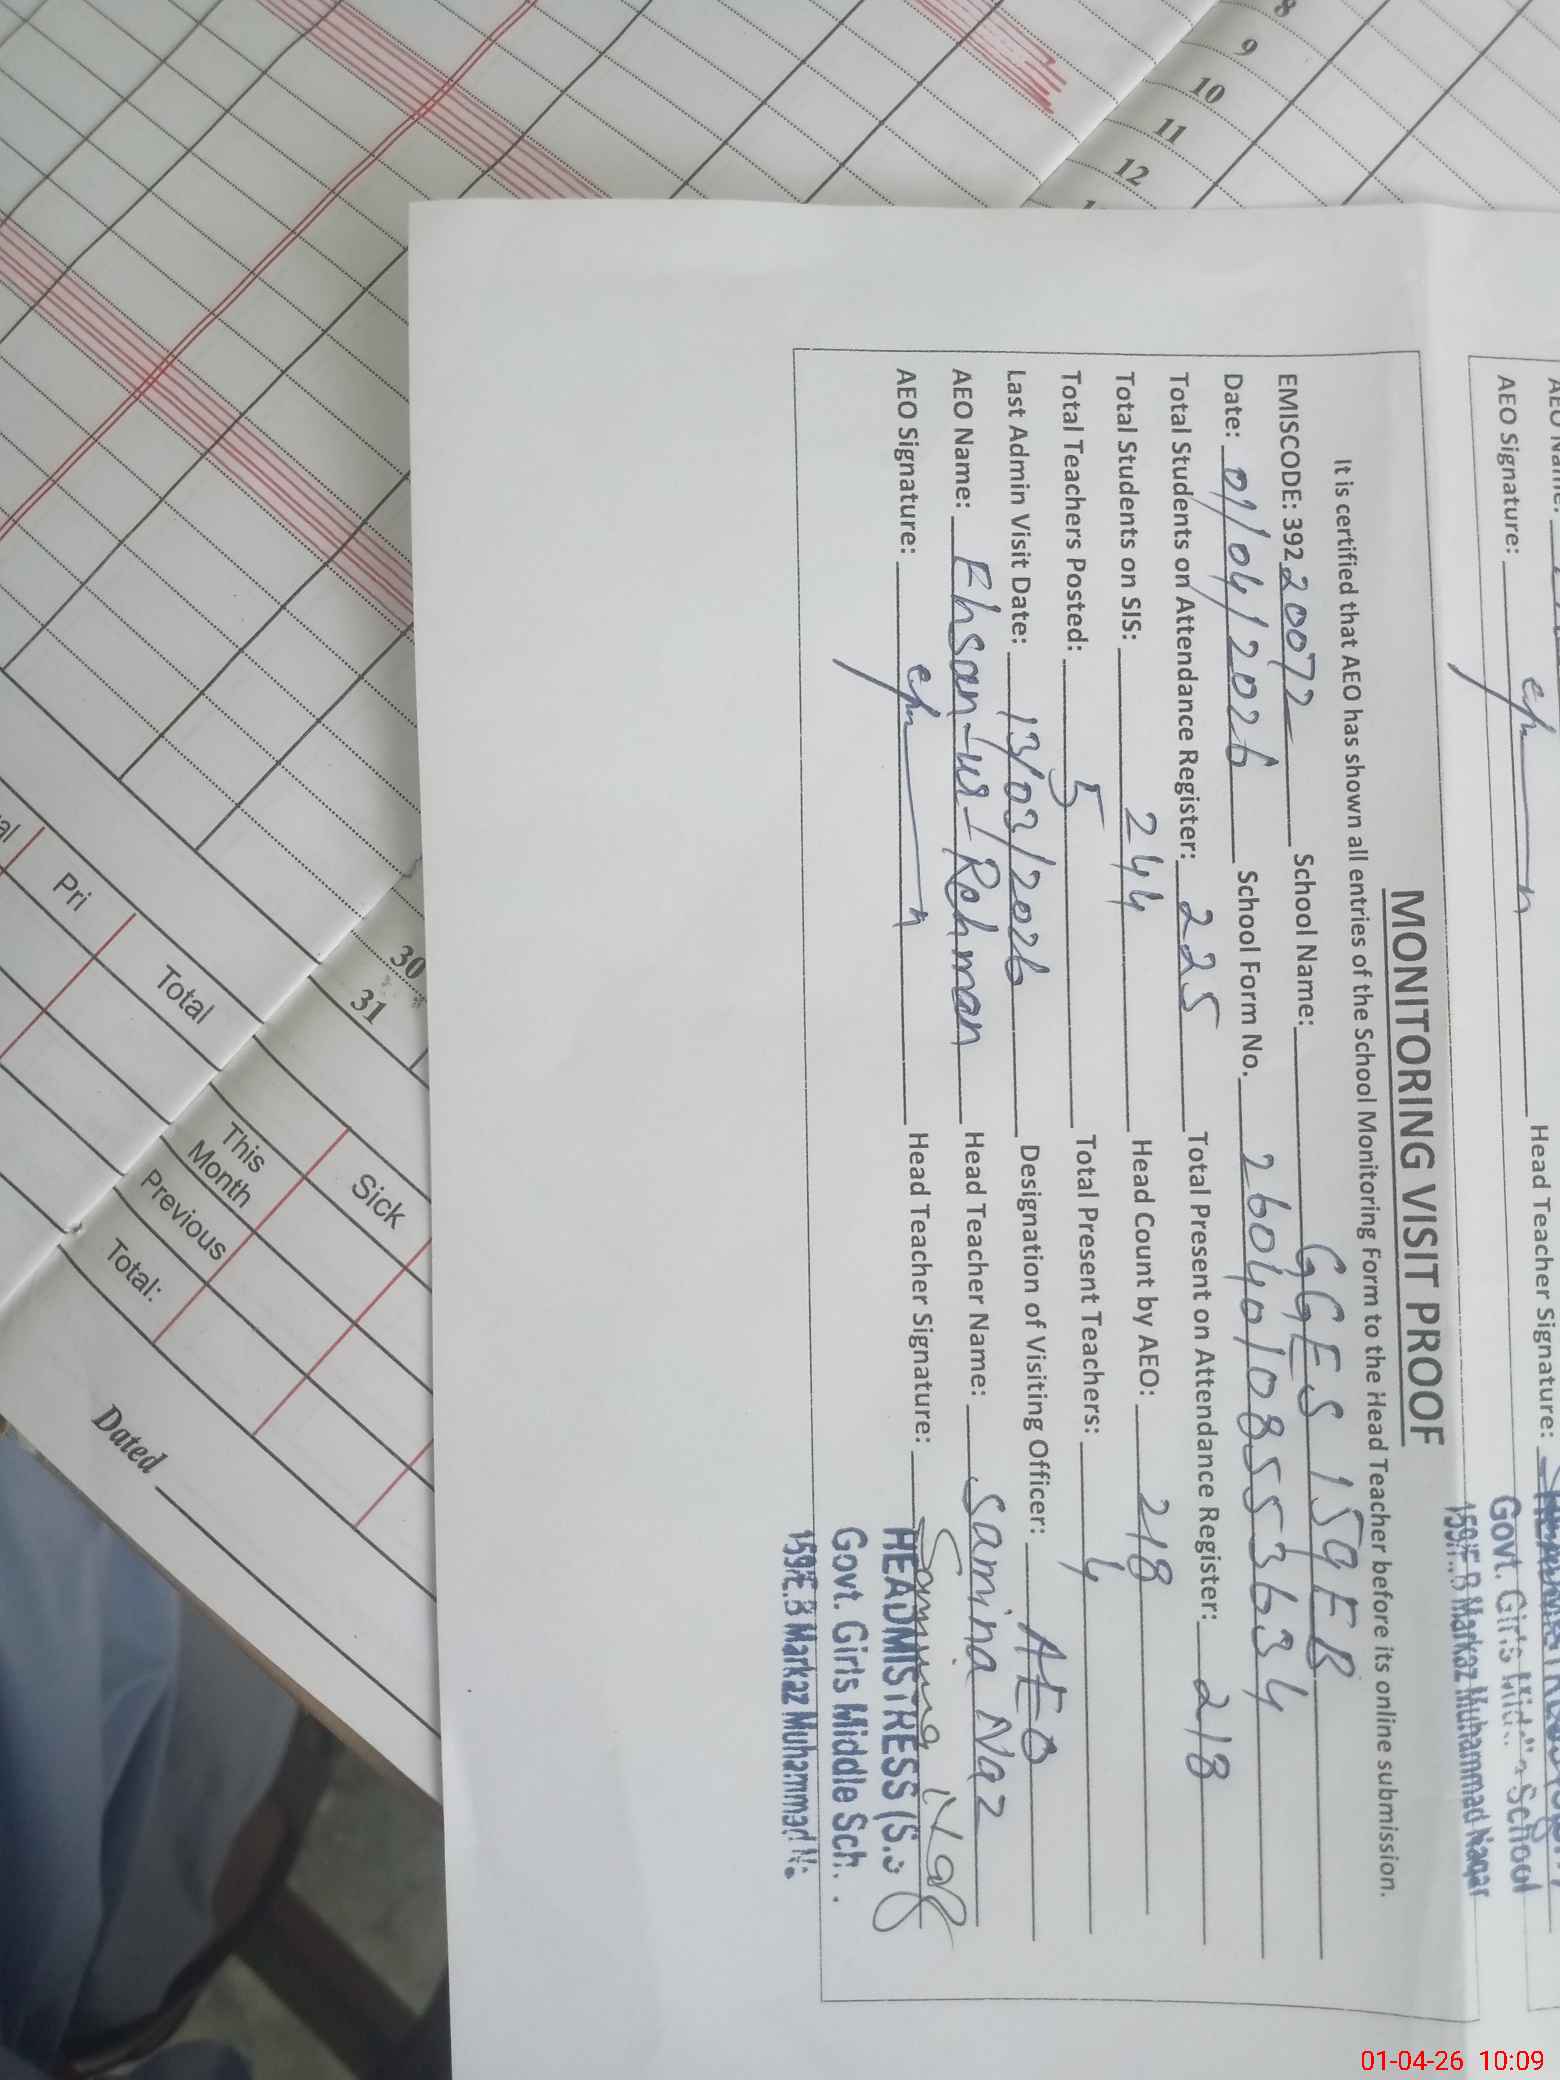 8
9
10
11
12
30
31
al
Pri
Total
This Month
Previous
Total:
Sick
Dated
AEO Name:
AEO Signature:
Head Teacher Signature:
Govt. Girls Middle School
159/E.B Markaz Muhammad Nagar
MONITORING VISIT PROOF
It is certified that AEO has shown all entries of the School Monitoring Form to the Head Teacher before its online submission.
EMISCODE: 392 20072 School Name: GGES 159EB
Date: 01/04/2026 School Form No. 26040108553634
Total Students on Attendance Register: 225 Total Present on Attendance Register: 218
Total Students on SIS: 244 Head Count by AEO: 218
Total Teachers Posted: 5 Total Present Teachers: 4
Last Admin Visit Date: 13/03/2026 Designation of Visiting Officer: AEO
AEO Name: Ehsan-ur-Rehman Head Teacher Name: Samina Naz
AEO Signature: Head Teacher Signature: Samina Naz
HEADMISTRESS (S.
Govt. Girls Middle Sch
159/E.B Markaz Muhammad N
01-04-26 10:09